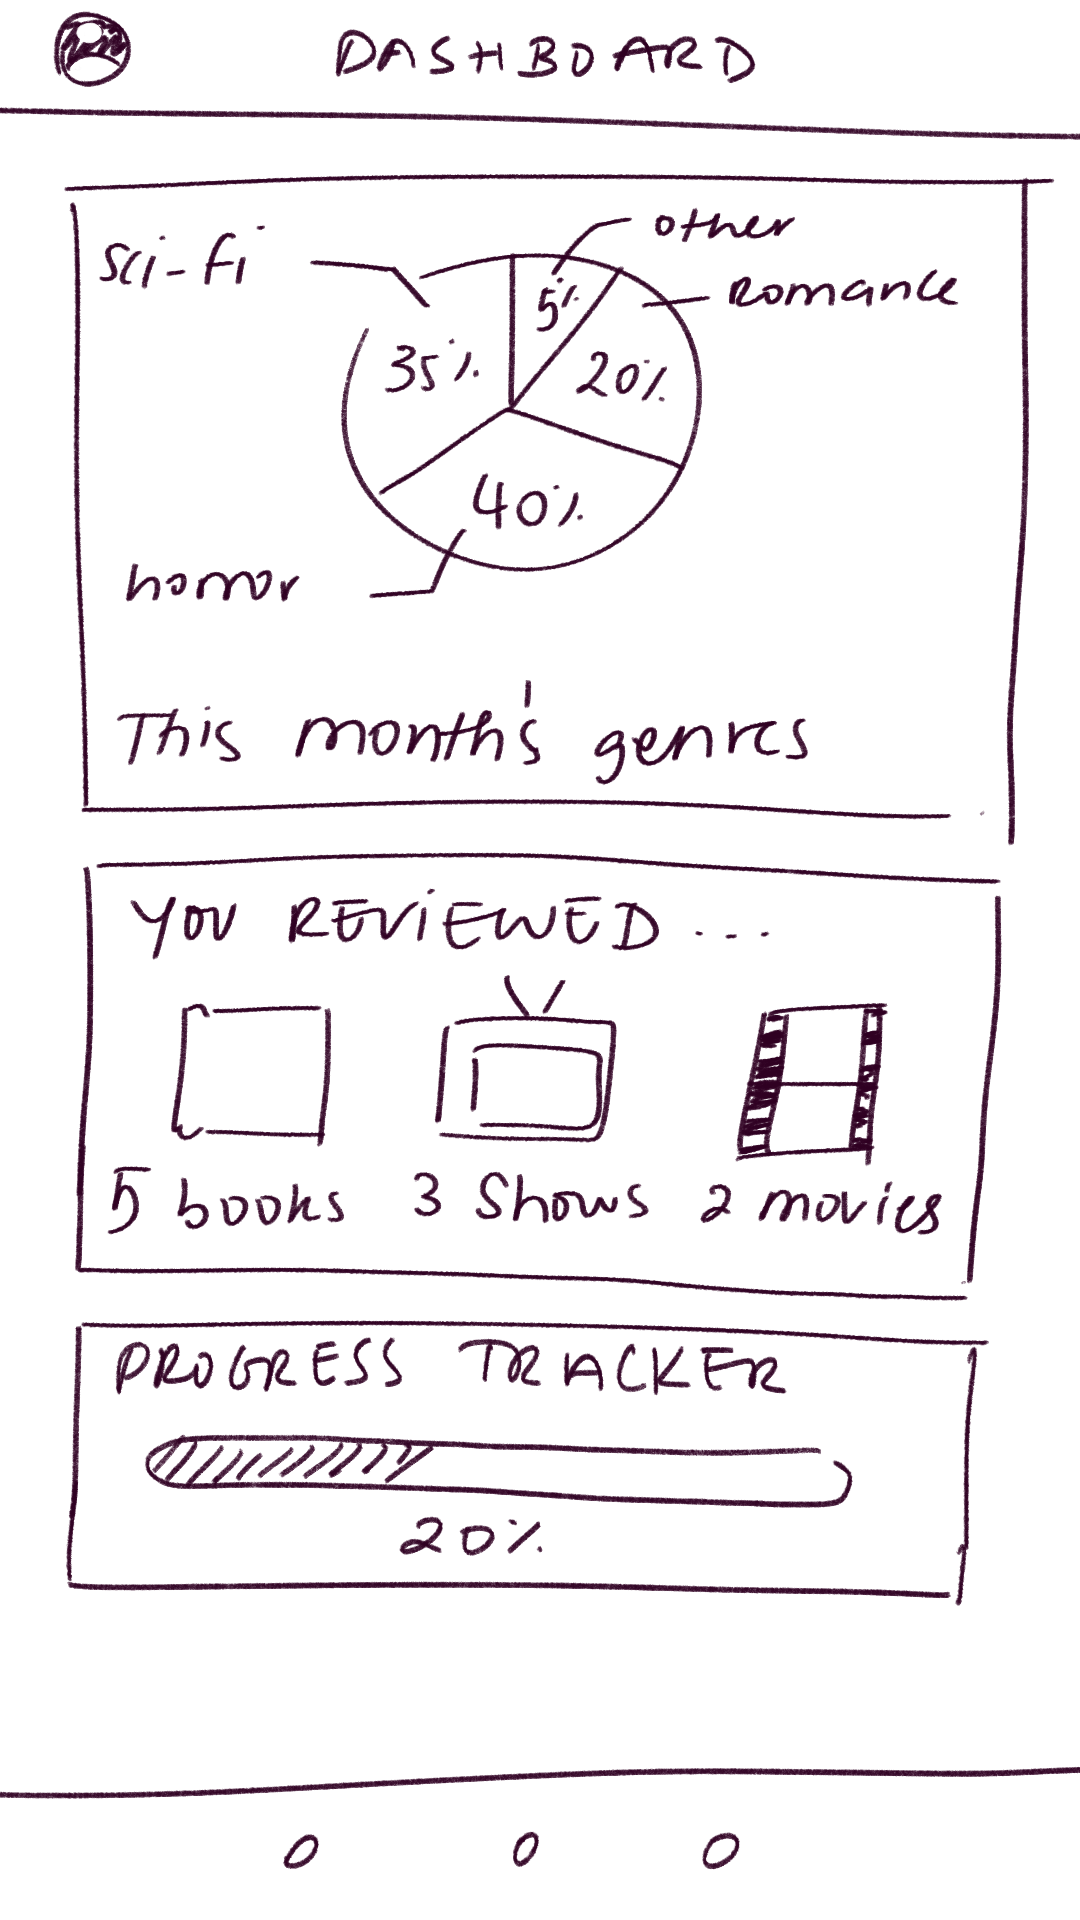 DASHBOARD
other
sci-fi
Romance
5%
35%
20%
40%
horror
This month's genres
YOU REVIEWED...
5 books
3 Shows
2 movies
PROGRESS TRACKER
20%